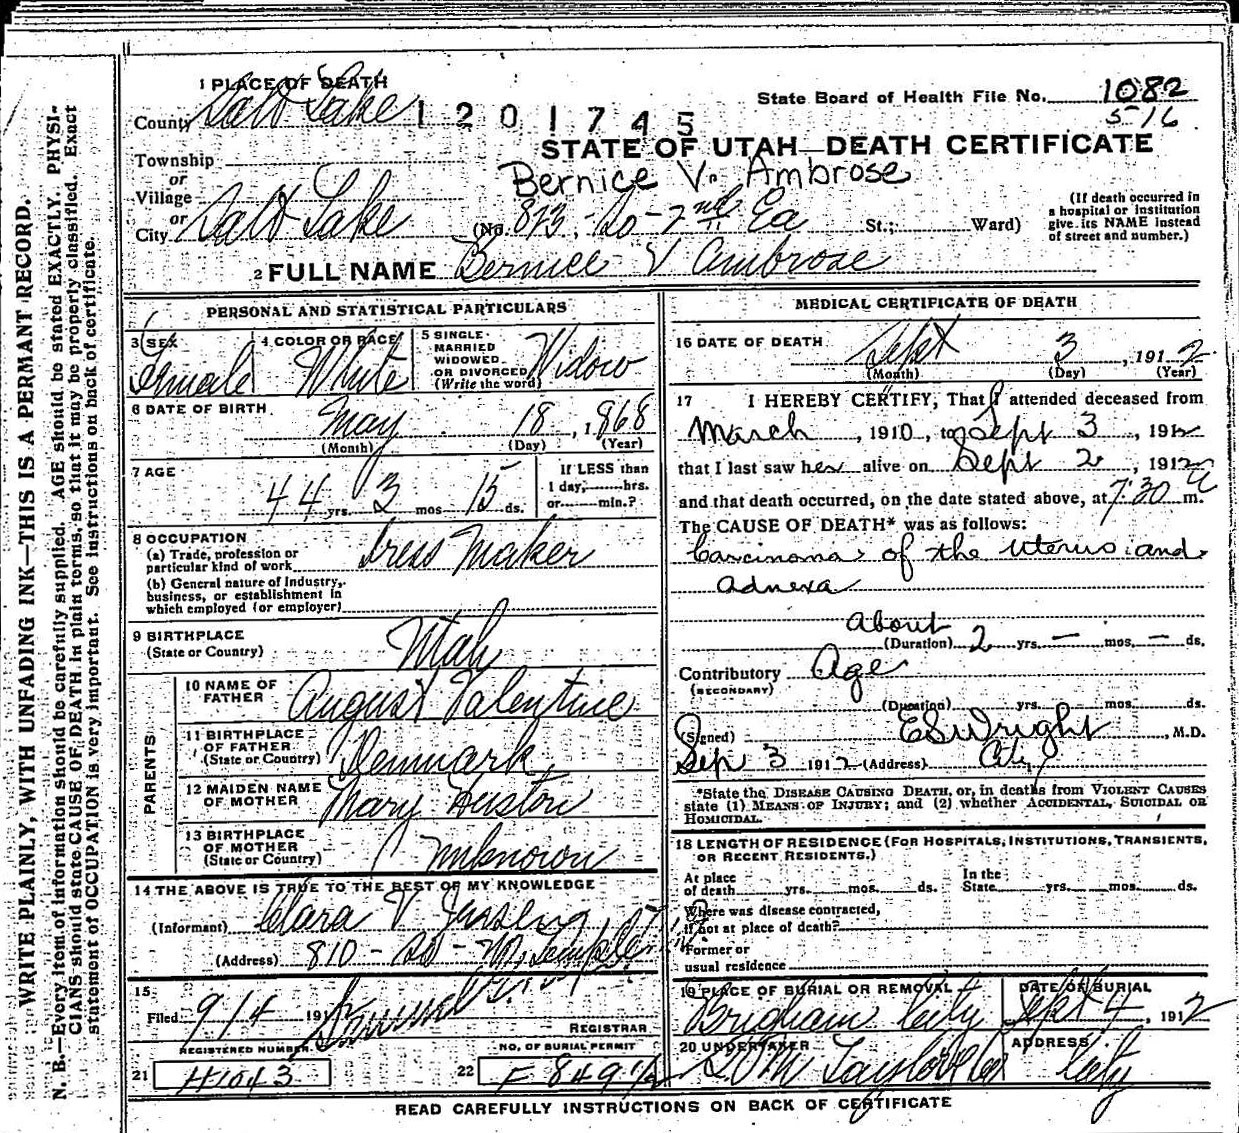 1 PLACE OF DEATH
State Board of Health File No. 1082
5-16
County Salt Lake 1 2 0 1 7 4 5
STATE OF UTAH—DEATH CERTIFICATE
Township
or
Bernice V. Ambrose
Village
or
City Salt Lake (No. 873 - So - 2nd Ea St.; Ward)
(If death occurred in
a hospital or institution
give its NAME instead
of street and number.)
2 FULL NAME Bernice V Ambrose
PERSONAL AND STATISTICAL PARTICULARS
3 SEX Female
4 COLOR OR RACE White
5 SINGLE
MARRIED
WIDOWED
OR DIVORCED
(Write the word) Widow
6 DATE OF BIRTH
May 18, 1868
(Month) (Day) (Year)
7 AGE
44 yrs. 3 mos 15 ds.
If LESS than
1 day, hrs.
or min.?
8 OCCUPATION
(a) Trade, profession or
particular kind of work Dress Maker
(b) General nature of Industry,
business, or establishment in
which employed (or employer)
9 BIRTHPLACE
(State or Country) Utah
PARENTS
10 NAME OF
FATHER August Valentine
11 BIRTHPLACE
OF FATHER
(State or Country) Denmark
12 MAIDEN NAME
OF MOTHER Mary Huston
13 BIRTHPLACE
OF MOTHER
(State or Country) Unknown
14 THE ABOVE IS TRUE TO THE BEST OF MY KNOWLEDGE
(Informant) Clara V Jensen
(Address) 810 - So - W. Temple St
15
Filed 9/4 191
REGISTRAR
REGISTERED NUMBER
NO. OF BURIAL PERMIT
21 H1043
22 F 849 1/2
MEDICAL CERTIFICATE OF DEATH
16 DATE OF DEATH
Sept 3, 1912
(Month) (Day) (Year)
17 I HEREBY CERTIFY, That I attended deceased from
March, 1910, to Sept 3, 1912
that I last saw her alive on Sept 2, 1912
and that death occurred, on the date stated above, at 7:30 a m.
The CAUSE OF DEATH* was as follows:
Carcinoma of the uterus and
adnexa
About
(Duration) 2 yrs. — mos. — ds.
Contributory Age
(SECONDARY)
(Duration) yrs. mos. ds.
(Signed) E S Wright, M.D.
Sep 3 1912 (Address) City
*State the DISEASE CAUSING DEATH, or, in deaths from VIOLENT CAUSES
state (1) MEANS OF INJURY; and (2) whether ACCIDENTAL, SUICIDAL OR
HOMICIDAL.
18 LENGTH OF RESIDENCE (FOR HOSPITALS, INSTITUTIONS, TRANSIENTS,
OR RECENT RESIDENTS.)
At place
of death yrs. mos. ds.
In the
State yrs. mos. ds.
Where was disease contracted,
if not at place of death?
Former or
usual residence
19 PLACE OF BURIAL OR REMOVAL
Brigham City
DATE OF BURIAL
Sept 4, 1912
20 UNDERTAKER
S M Taylor & Co
ADDRESS
City
READ CAREFULLY INSTRUCTIONS ON BACK OF CERTIFICATE
WRITE PLAINLY, WITH UNFADING INK—THIS IS A PERMANT RECORD.
N. B.—Every item of information should be carefully supplied. AGE should be stated EXACTLY. PHYSI-
CIANS should state CAUSE OF DEATH in plain terms, so that it may be properly classified. Exact
statement of OCCUPATION is very important. See instructions on back of certificate.